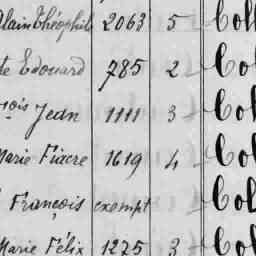 Alain Théophile 2063 5 Coll
Edouard 785 2 Col
çois Jean 1111 3 Col
Marie Fiacre 1619 4 Col
François exempt Col
Marie Félix 1225 3 Col